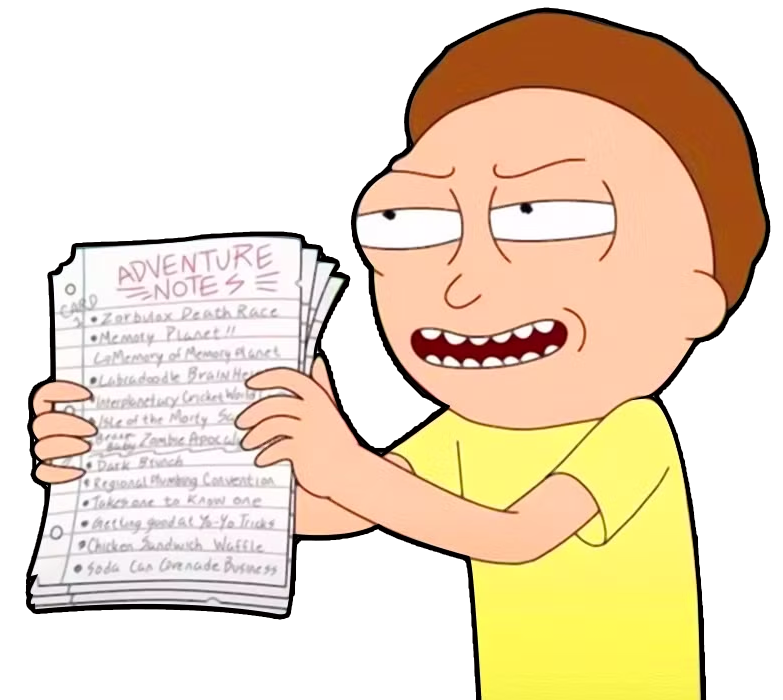 ADVENTURE
NOTES
CARD
• Zorbulox Death Race
• Memory Planet!!
↳Memory of Memory Planet
• Labradoodle Brain
• Interplanetary Cricket World
• Isle of the Morty
Baby Zombie
• Dark Brunch
• Regional Plumbing Convention
• Takes one to Know one
• Getting good at Yo-Yo Tricks
• Chicken Sandwich Waffle
• Soda Can Business